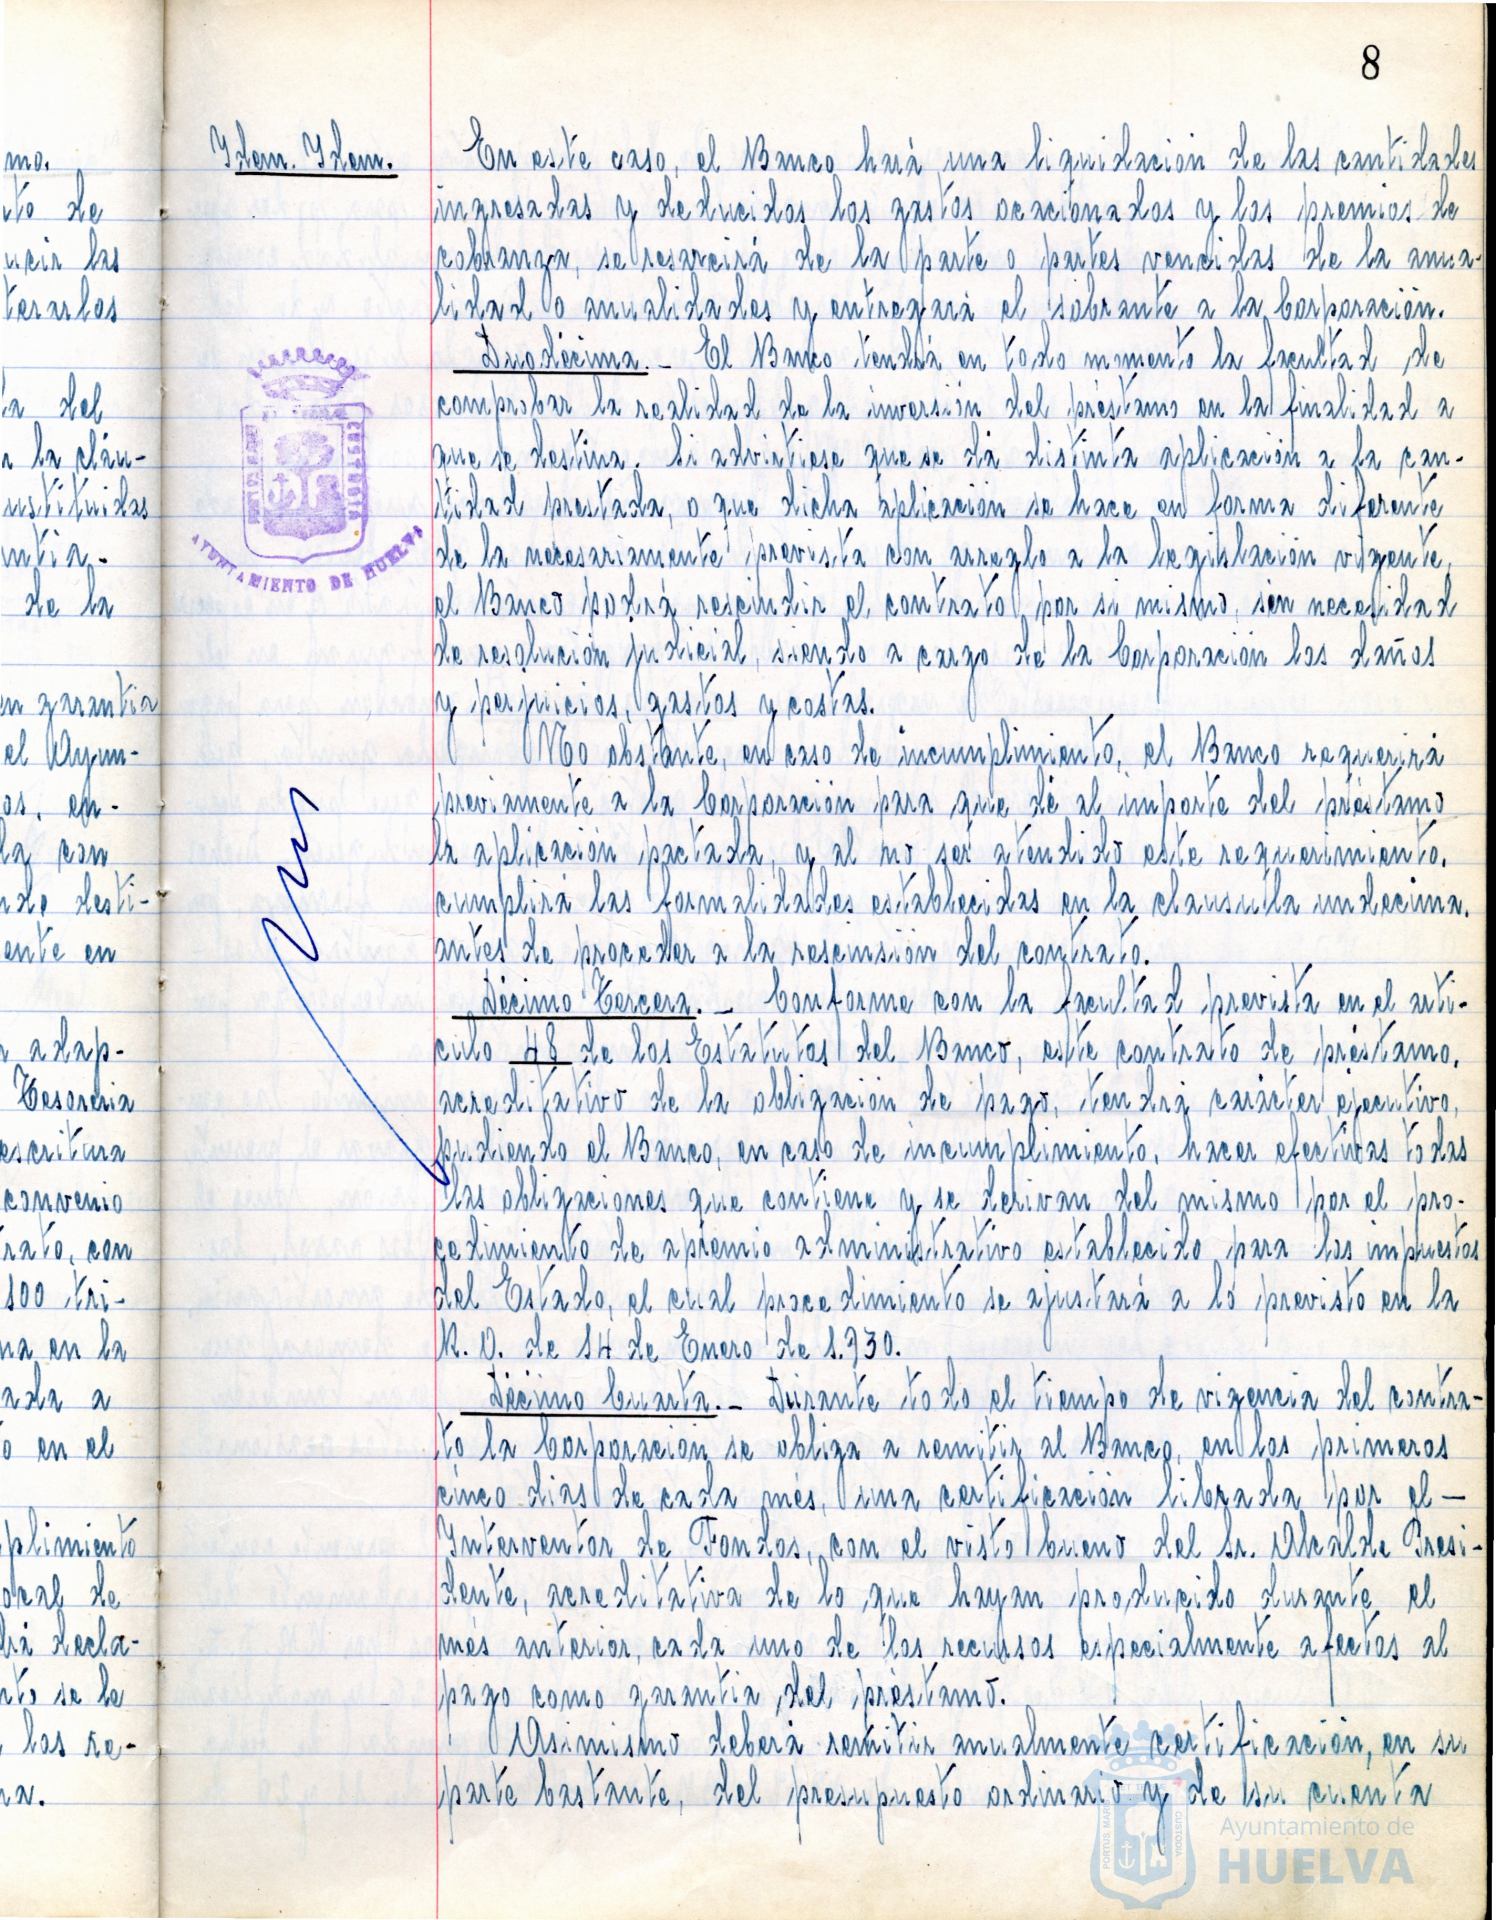 8
mo.
to de
ucir las
terarlos
ta del
a la cláu-
ustituidas
untia.
de la
en garantia
el Ayun-
os, en-
la con
nde desti-
ente en
a adap-
Tesoreria
escritura
convenio
rato, con
100 tri-
na en la
ada a
o en el
plimiento
ocal de
drá decla-
nto se le
, los re-
na.
Idem. Idem.
En este caso, el Banco hará una liquidación de las cantidades
ingresadas y deducidos los gastos ocacionados y los premios de
cobranza, se resarcirá de la parte o partes vencidas de la anua-
lidad o anualidades y entregará el sobrante a la Corporación.
Duodécima.- El Banco tendrá en todo momento la facultad de
comprobar la realidad de la inversión del préstamo en la finalidad a
que se destina. Si advirtiese que se dá distinta aplicación a la can-
tidad prestada, o que dicha aplicación se hace en forma diferente
de la necesariamente prevista con arreglo a la legislación vigente,
el Banco podrá rescindir el contrato por si mismo, sin necesidad
de resolución judicial, siendo a cargo de la Corporación los daños
y perjuicios, gastos y costas.
No obstante, en caso de incumplimiento, el Banco requerirá
previamente a la Corporación para que dé al importe del préstamo
la aplicación pactada, y al no ser atendido este requerimiento,
cumplirá las formalidades establecidas en la clausula undecima,
antes de proceder a la rescinsión del contrato.
Décimo Tercera.- Conforme con la facultad prevista en el arti-
culo 48 de los Estatutos del Banco, este contrato de préstamo,
acreditativo de la obligación de pago, tendrá carácter ejecutivo,
pudiendo el Banco, en caso de incumplimiento, hacer efectivas todas
las obligaciones que contiene y se derivan del mismo por el pro-
cedimiento de apremio administrativo establecido para los impuestos
del Estado, el cual procedimiento se ajustará a lo previsto en la
R. O. de 14 de Enero de 1.930.
Décimo Cuarta.- Durante todo el tiempo de vigencia del contra-
to la Corporación se obliga a remitir al Banco, en los primeros
cinco dias de cada més, una certificación librada por el -
Interventor de Fondos, con el visto bueno del Sr. Alcalde Presi-
dente, acreditativa de lo que hayan producido durante el
més anterior, cada uno de los recursos especialmente afectos al
pago como garantia del préstamo.
Asimismo deberá remitir anualmente certificación, en su
parte bastante, del presupuesto ordinario y de su cuenta
CUSTODIA
AYUNTAMIENTO DE HUELVA
PORTUS MARIS
CUSTODIA
Ayuntamiento de
HUELVA